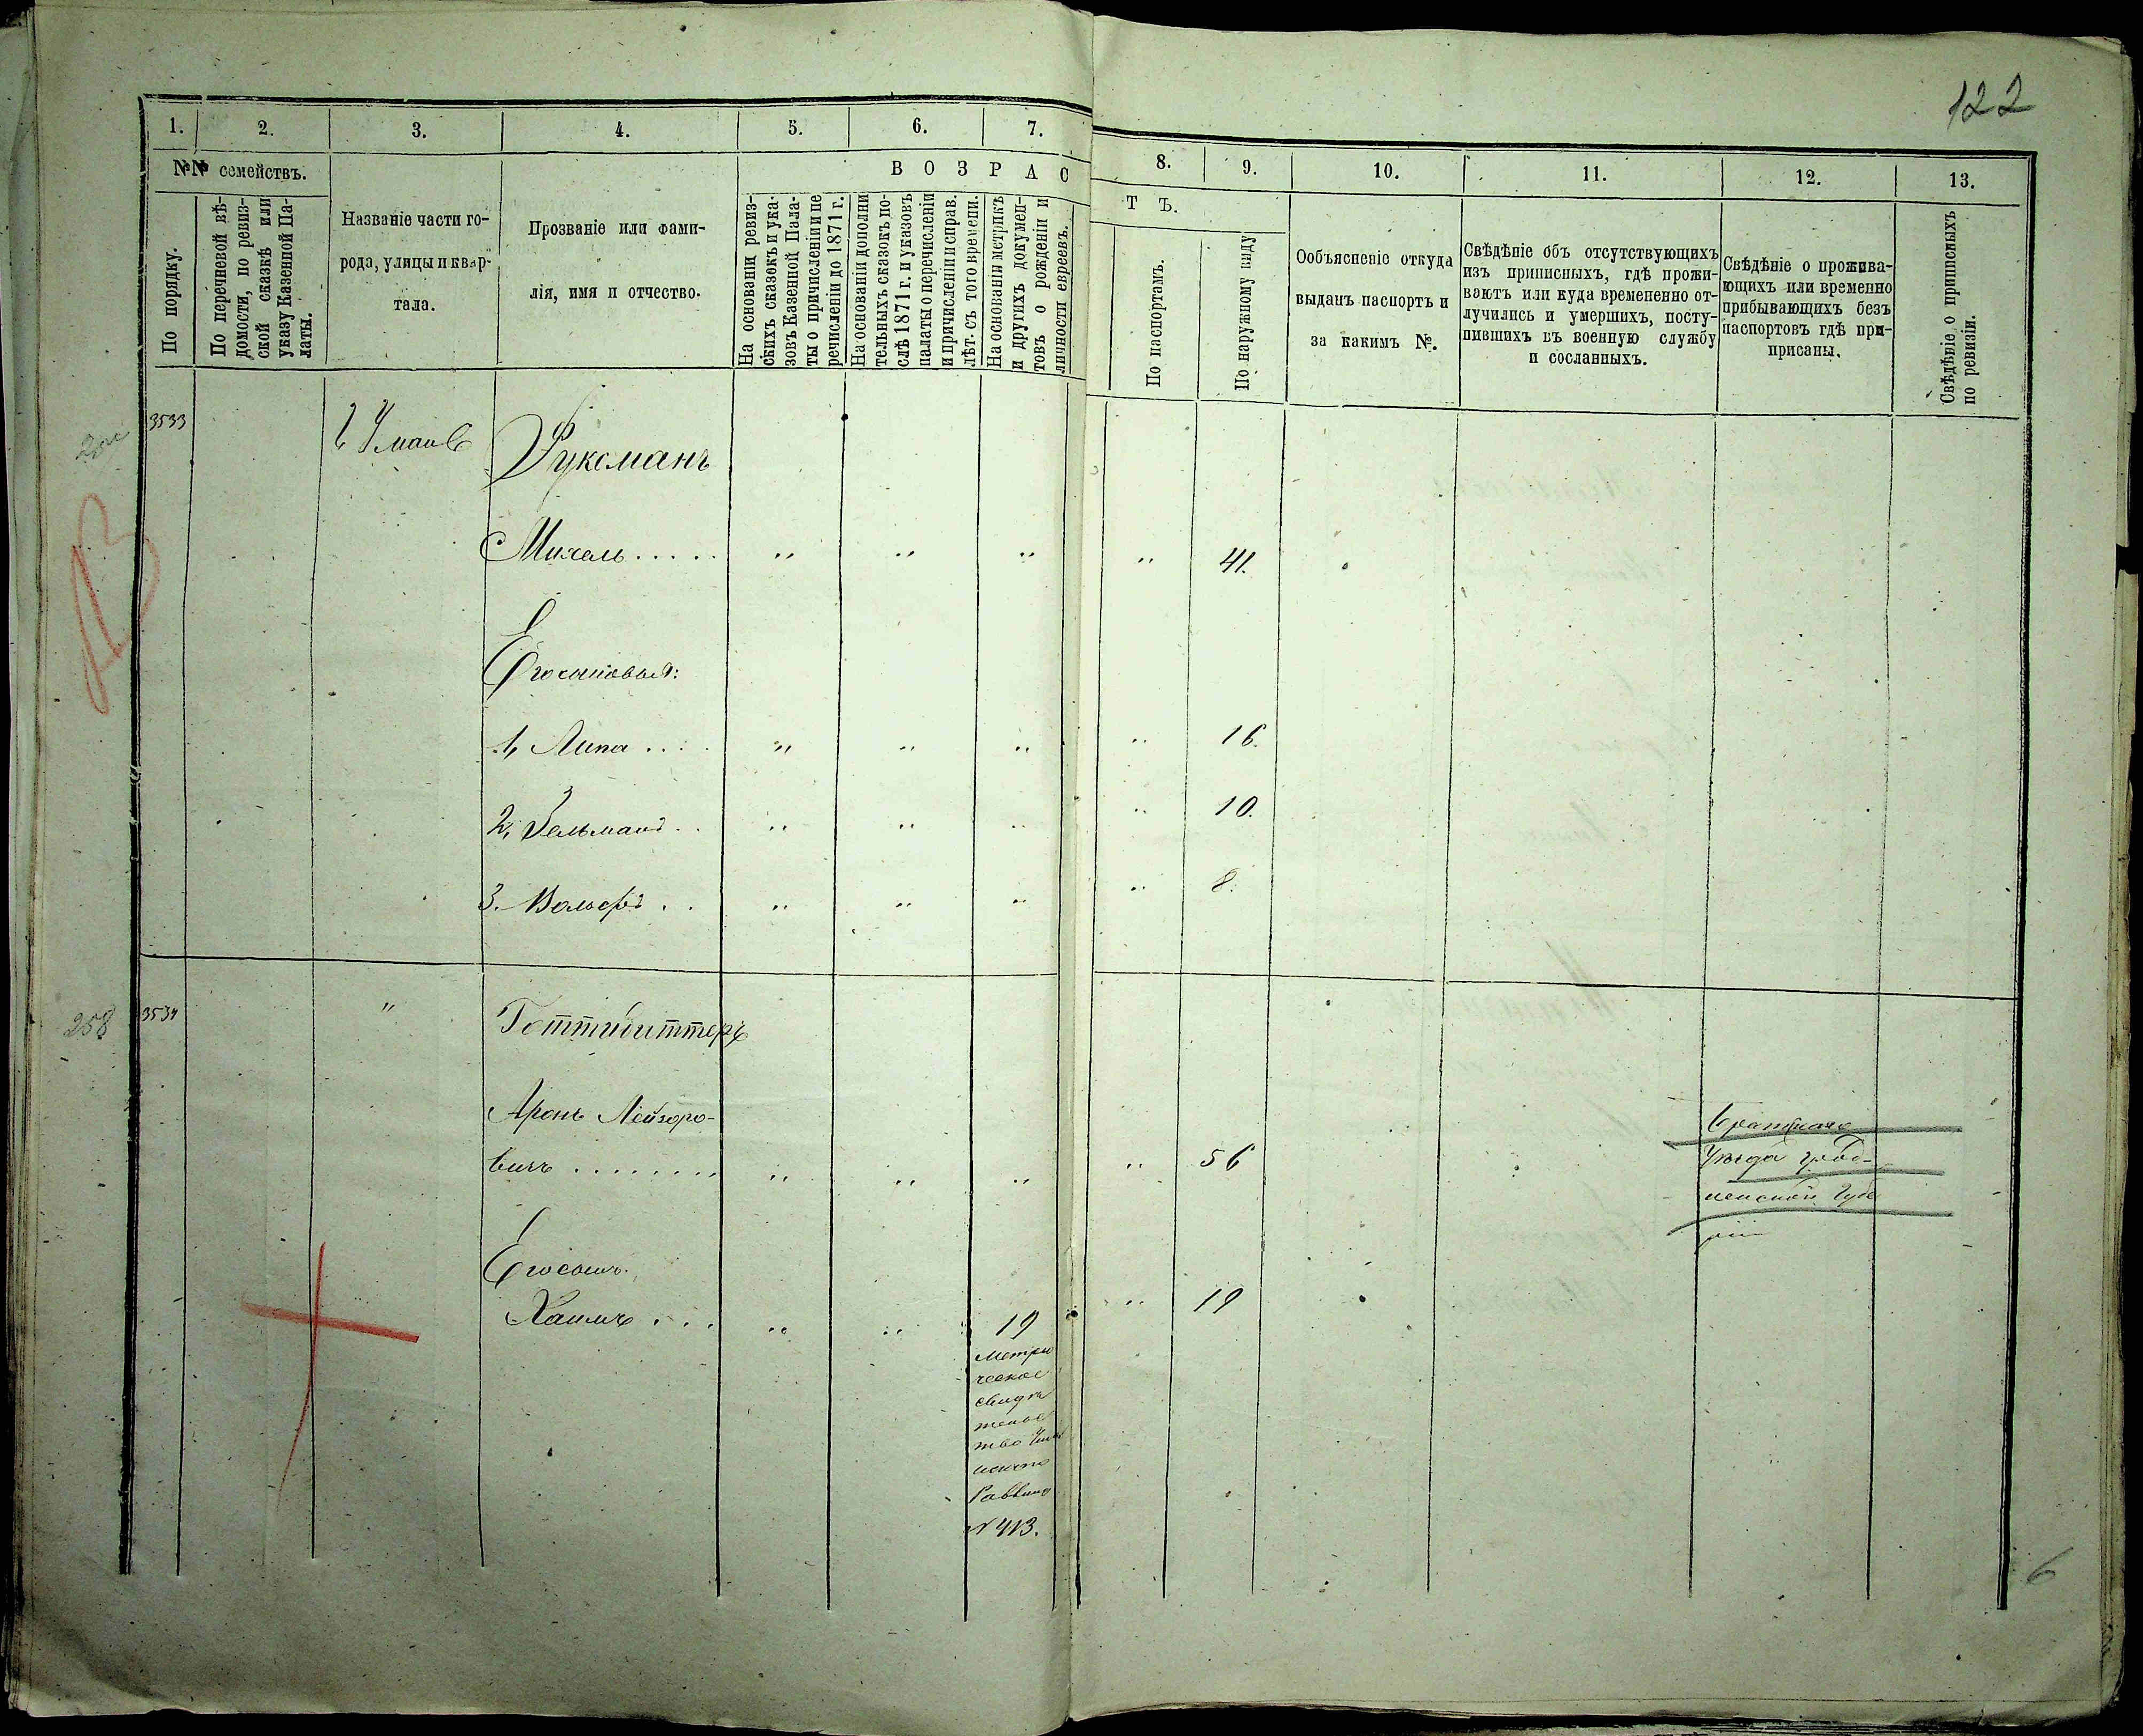 122
1. 2. 3. 4. 5. 6. 7. 8. 9. 10. 11. 12. 13.
№№ семействъ.
По порядку.
По перечневой вѣ-
домости, по ревиз-
ской сказкѣ или
указу Казенной Па-
латы.
Названіе части го-
рода, улицы и квар-
тала.
Прозваніе или фами-
лія, имя и отчество.
ВОЗРАС
ТЪ.
На основаніи ревиз-
скихъ сказокъ и ука-
зовъ Казенной Пала-
ты о причисленіи и пе
речисленіи до 1871 г.
На основаніи дополни
тельныхъ сказокъ по-
слѣ 1871 г. и указовъ
палаты о перечисленіи
и причисленіи справ.
лѣт. съ того времени.
На основаніи метрикъ
и другихъ докумен-
товъ о рожденіи и
личности евреевъ.
По паспортамъ.
По наружному виду
Ообъясненіе откуда
выданъ паспортъ и
за какимъ №.
Свѣдѣніе объ отсутствующихъ
изъ приписныхъ, гдѣ прожи-
ваютъ или куда временено от-
лучились и умершихъ, посту-
пившихъ въ военную службу
и сосланныхъ.
Свѣдѣніе о прожива-
ющихъ или временно
прибывающихъ безъ
паспортовъ гдѣ при-
присаны.
Свѣдѣніе о припислыхъ
по ревизіи.
3533
Руксманъ
Михель ..... " " " " 41.
Его сыновья:
1, Липа .... " " " " 16.
2, Зельманъ .. " " " " 10.
3. Вольфъ .. " " " " 8.
258
3534 "
Готтибиттеръ
Аронъ Лейзоро-
вичъ ........ " " " " 56
уѣзда Грод-
ненской Губе
рніи
Его сынъ.
Хаимъ ... " " 19 " 19
Метри
ческое
свидѣ
тельс
тво
Раввина
№ 413.
6